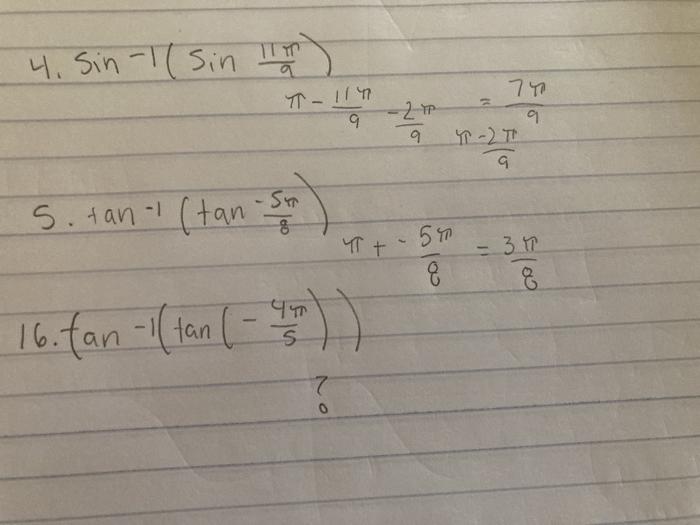 4. sin -1 ( sin 11π/9 )
π - 11π/9 -2π/9 = 7π/9
π -2π/9
5. tan -1 ( tan -5π/8 )
π + - 5π/8 = 3π/8
16. tan -1( tan ( - 4π/5 ) )
?